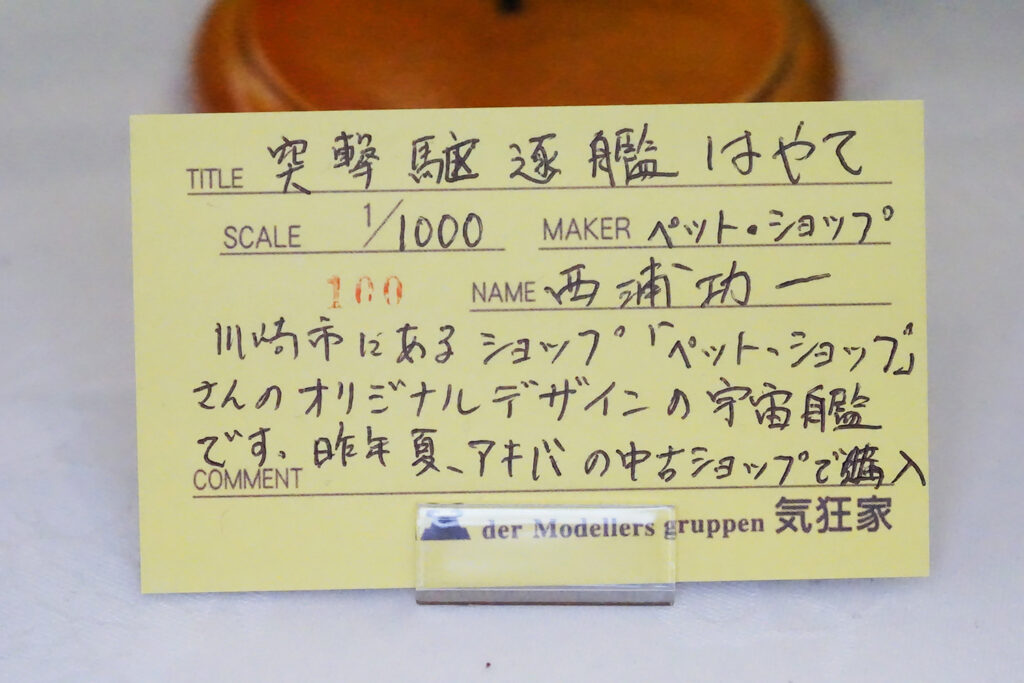 TITLE 突撃駆逐艦 はやて
SCALE 1/1000 MAKER ペット・ショップ
100 NAME 西浦功一
川崎市にあるショップ「ペット・ショップ」
さんのオリジナルデザインの宇宙艦
です。昨年夏、アキバの中古ショップで購入
COMMENT
der Modellers gruppen 気狂家